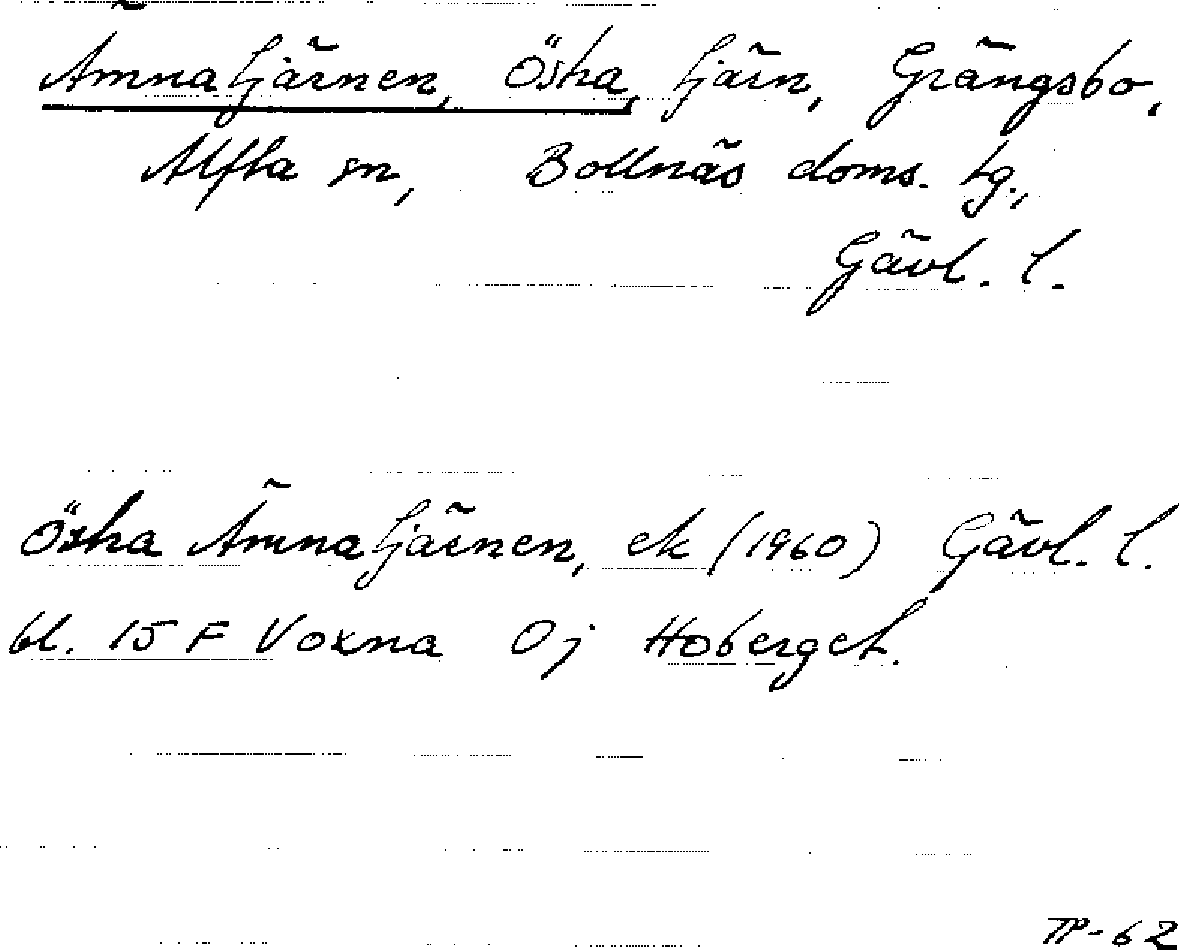 Ämnatjärnen, Östra, tjärn, Grängsbo,
Alfta sn, Bollnäs doms. tg.,
Gävl. l.
Östra Ämnatjärnen, ek (1960) Gävl. l.
bl. 15 F Voxna 0j Hoberget.
TP-62